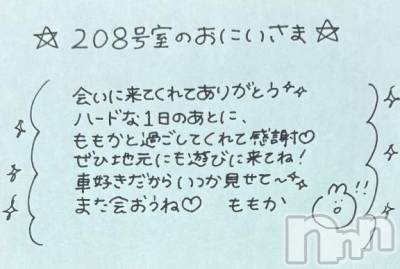 ☆208号室のおにいさま☆
会いに来てくれてありがとう✨
ハードな1日のあとに、
ももかと過ごしてくれて感謝♡
ぜひ地元にも遊びに来てね！
車好きだからいつか見せて〜✨
また会おうね♡ ももか
!!
nmn